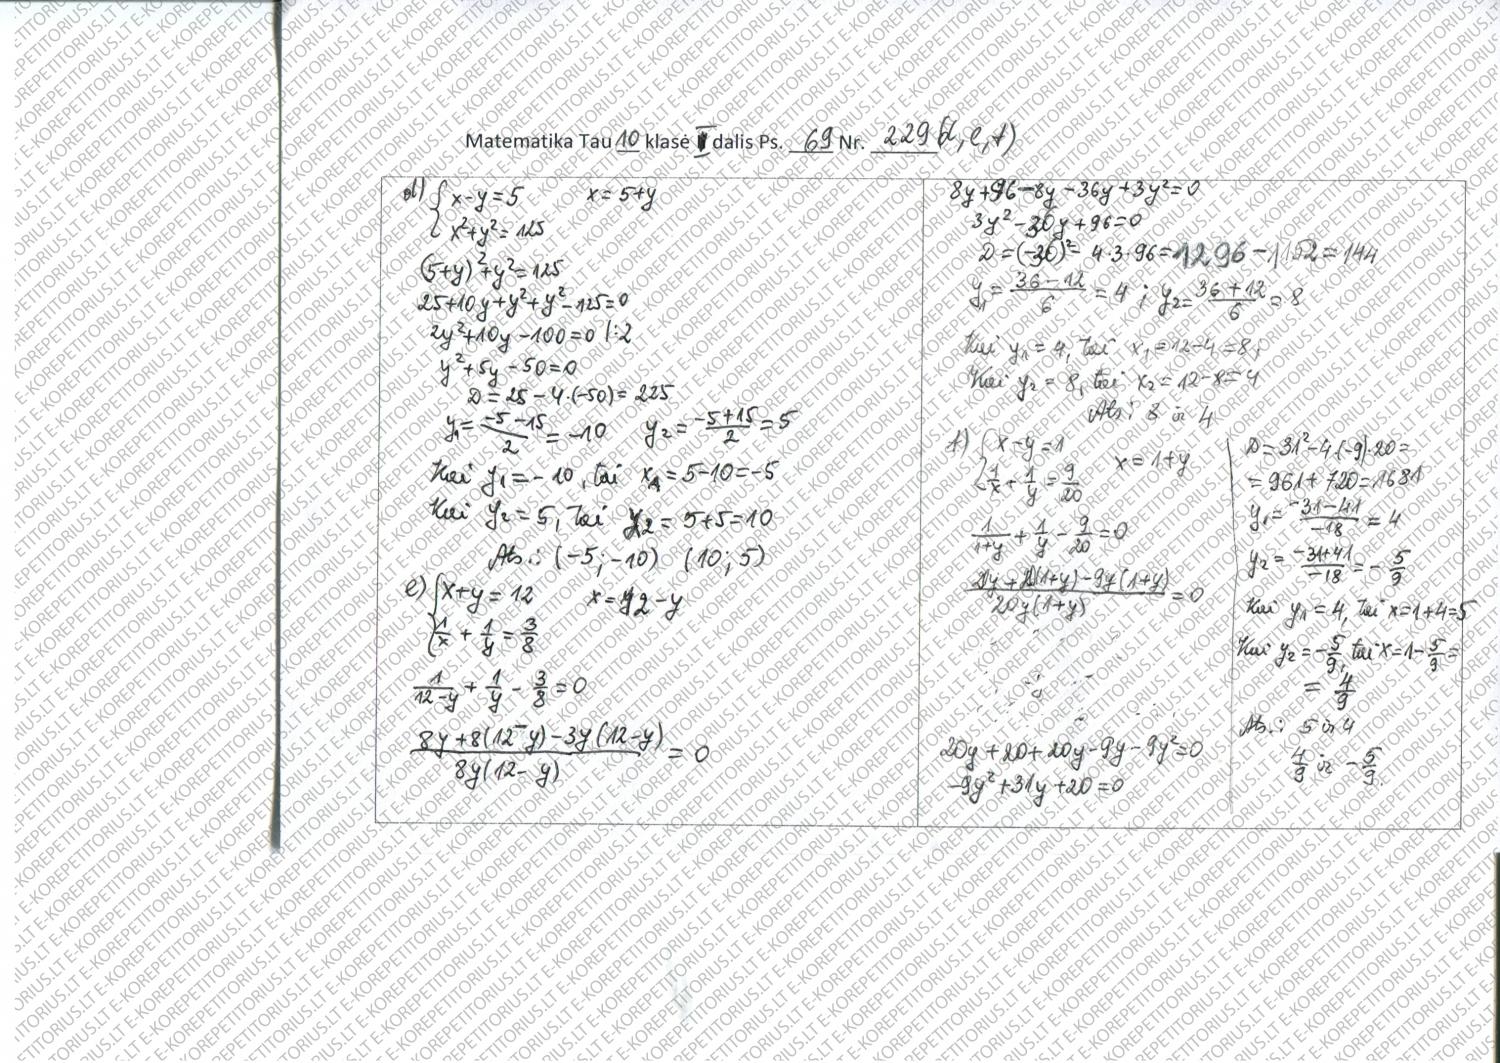 Matematika Tau 10 klasė II dalis Ps. 69 Nr. 229 (d, e, f)
d) { x-y=5 x=5+y
x²+y²=125
(5+y)²+y²=125
25+10y+y²+y²-125=0
2y²+10y-100=0 |:2
y²+5y-50=0
D=25-4·(-50)=225
y₁=(-5-15)/2=-10 y₂=(-5+15)/2=5
Kai y₁=-10, tai x₁=5-10=-5
Kai y₂=5, tai x₂=5+5=10
Ats.: (-5;-10) (10;5)
e) { x+y=12 x=12-y
1/x + 1/y = 3/8
1/(12-y) + 1/y - 3/8 = 0
(8y+8(12-y)-3y(12-y))/(8y(12-y)) = 0
8y+96-8y-36y+3y²=0
3y²-36y+96=0
D=(-36)²-4·3·96=1296-1152=144
y₁=(36-12)/6=4 ; y₂=(36+12)/6=8
Kai y₁=4, tai x₁=12-4=8;
Kai y₂=8, tai x₂=12-8=4
Ats.: 8 ir 4
f) { x-y=1 x=1+y
1/x + 1/y = 9/20
1/(1+y) + 1/y - 9/20 = 0
(20y+20(1+y)-9y(1+y))/(20y(1+y)) = 0
20y+20+20y-9y-9y²=0
-9y²+31y+20=0
D=31²-4·(-9)·20=
=961+720=1681
y₁=(-31-41)/-18=4
y₂=(-31+41)/-18=-5/9
Kai y₁=4, tai x=1+4=5
Kai y₂=-5/9, tai x=1-5/9=
=4/9
Ats.: 5 ir 4
4/9 ir -5/9.
E-KOREPETITORIUS.LT